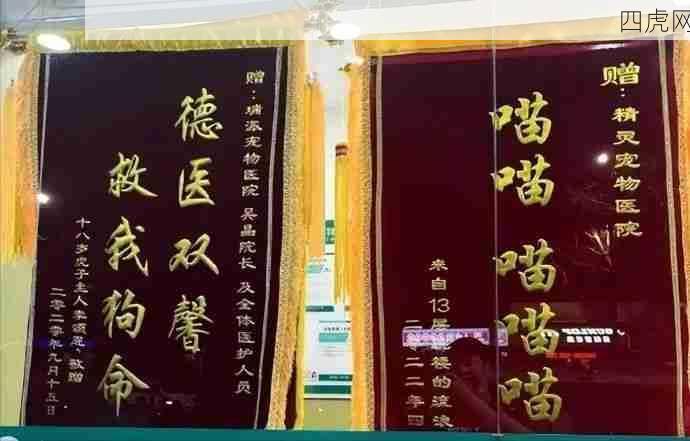 四虎网
赠：瑞派宠物医院 吴昌院长 及全体医护人员
德医双馨
救我狗命
十八岁虎子主人 敬赠
二零二零年九月十五日
赠：精灵宠物医院
喵喵 喵喵喵
来自13层 的流浪
二零二二年四